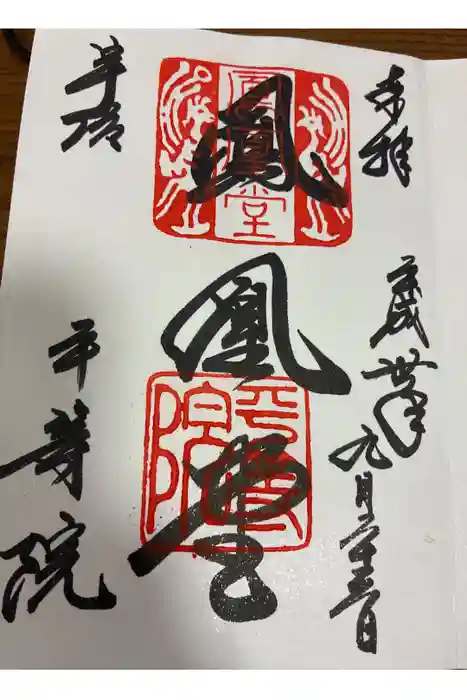 奉拝
平成丗年
九月二十三日
鳳凰堂
鳳凰堂
平等院
宇治
平等院